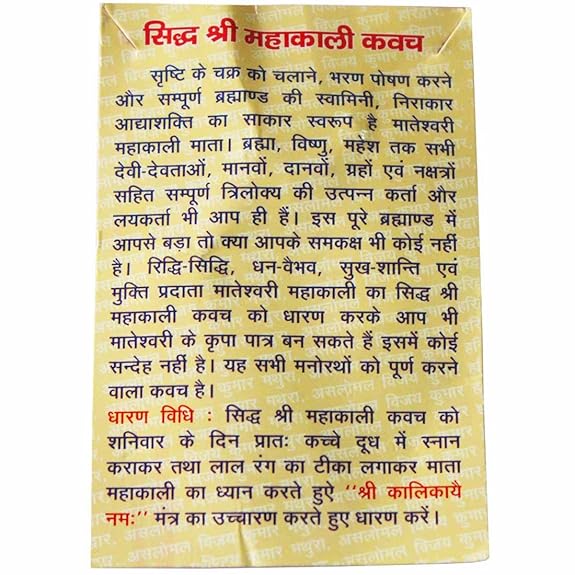 सिद्ध श्री महाकाली कवच
सृष्टि के चक्र को चलाने, भरण पोषण करने
और सम्पूर्ण ब्रह्माण्ड की स्वामिनी, निराकार
आद्याशक्ति का साकार स्वरूप है मातेश्वरी
महाकाली माता। ब्रह्मा, विष्णु, महेश तक सभी
देवी-देवताओं, मानवों, दानवों, ग्रहों एवं नक्षत्रों
सहित सम्पूर्ण त्रिलोक्य की उत्पन्न कर्ता और
लयकर्ता भी आप ही हैं। इस पूरे ब्रह्माण्ड में
आपसे बड़ा तो क्या आपके समकक्ष भी कोई नहीं
है। रिद्धि-सिद्धि, धन-वैभव, सुख-शान्ति एवं
मुक्ति प्रदाता मातेश्वरी महाकाली का सिद्ध श्री
महाकाली कवच को धारण करके आप भी
मातेश्वरी के कृपा पात्र बन सकते हैं इसमें कोई
सन्देह नहीं है। यह सभी मनोरथों को पूर्ण करने
वाला कवच है।
धारण विधि : सिद्ध श्री महाकाली कवच को
शनिवार के दिन प्रातः कच्चे दूध में स्नान
कराकर तथा लाल रंग का टीका लगाकर माता
महाकाली का ध्यान करते हुऐ ‘‘श्री कालिकायै
नमः’’ मंत्र का उच्चारण करते हुए धारण करें।